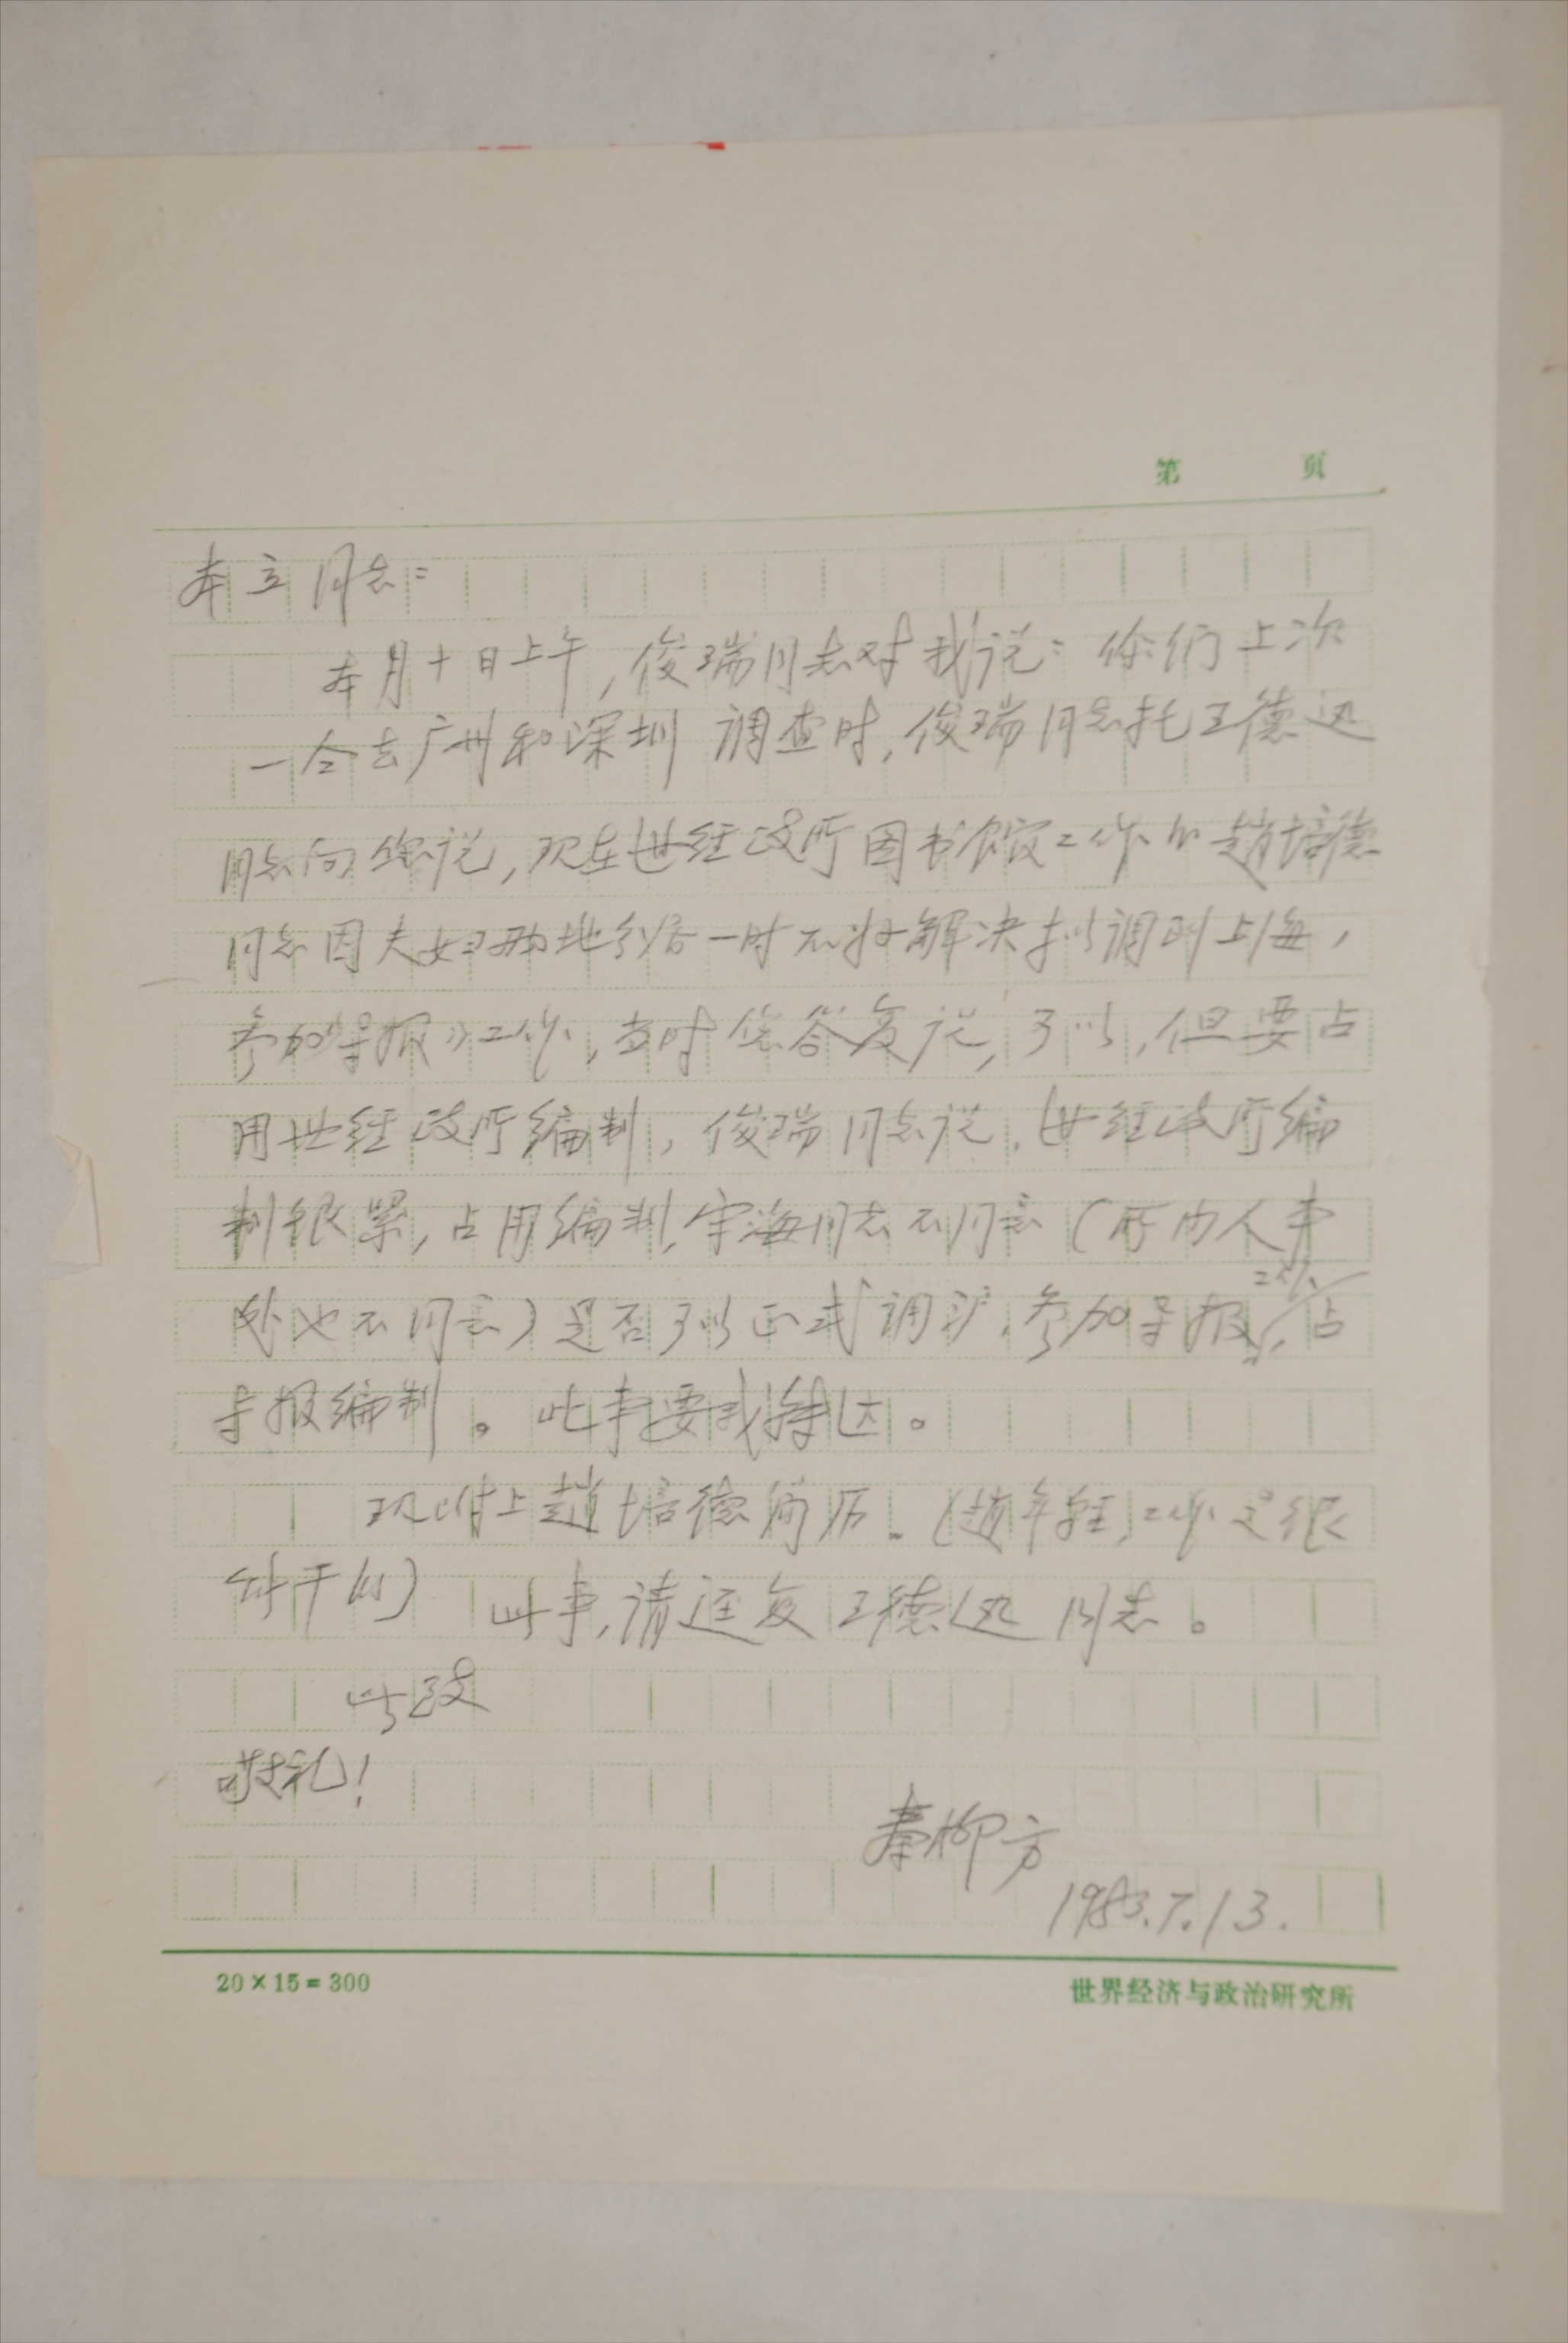 第 页
本立同志：
本月十日上午，俊瑞同志对我说：你们上次
一仝去广州和深圳 调查时，俊瑞同志托王德迅
同志向您说，现在世经政所图书馆工作的赵培德
同志因夫妇两地分居一时不好解决拟调到上海，
参加《导报》工作，当时您答复说，可以，但要占
用世经政所编制，俊瑞同志说，世经政所编
制很紧，占用编制，宇海同志不同意（所内人事
处也不同意）是否可以正式调沪，参加导报工作，占
导报编制。此事要我转达。
现附上赵培德简历。（赵年轻，工作是很
好干的） 此事，请迳复王德迅 同志。
此致
敬礼！
秦柳方
1983.7.13.
20×15=300 世界经济与政治研究所